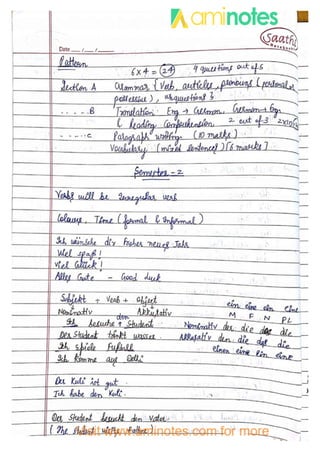 aminotes
Saathi
Date
Pattern
6 x 4 = 24 9 questions out of 5
Section A Grammar { Verb, articles, pronouns ( personal,
possessive ), questions }
B Translation : Eng → German German → Eng
( Reading Comprehension 2 out of 3 2x10
C Paragraph writing (10 marks)
Vocabulary (mixed sentences) [6 marks]
Semester - 2
Verbs will be irregular verb
Colour, Time ( formal & informal )
Ich wünsche dir Frohes neues Jahr
Viel Spaß!
Viel Glück!
Alles Gute - Good luck
Subjekt + Verb + Object
Nominativ Akkusativ
den
Ich besuche + Student
Der Student trinkt wasser
Ich spiele Fußball
Ich komme aus Delhi
ein eine ein eine
M F N PL
Nominativ der die das die
Akkusativ den die das die
einen eine ein eine
Der Kuli ist gut.
Ich habe den Kuli.
Der Student besucht den Vater
( The student visits father )
www.aminotes.com for more